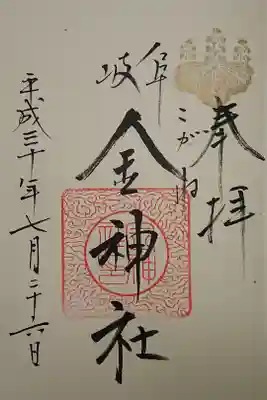 奉拝
岐阜
こがね
金神社
平成三十年七月二十六日